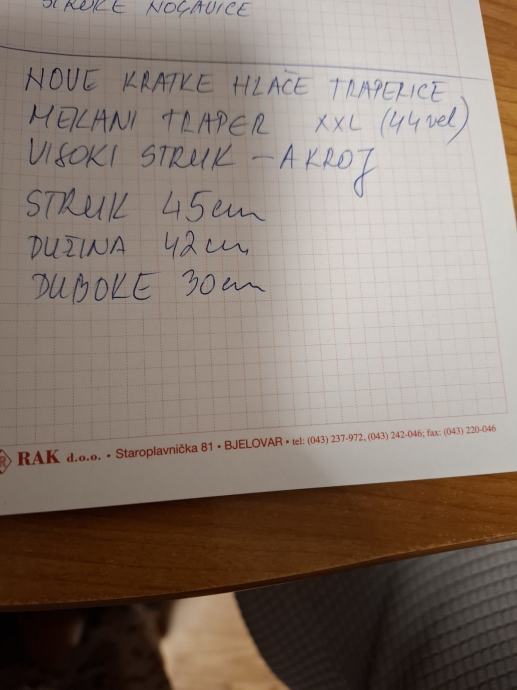 ŠIROKE NOGAVICE
NOVE KRATKE HLAČE TRAPERICE
MEKANI TRAPER XXL (44 vel)
VISOKI STRUK - A KROJ
STRUK 45cm
DUŽINA 42cm
DUBOKE 30cm
RAK d.o.o. • Staroplavnička 81 • BJELOVAR • tel: (043) 237-972, (043) 242-046; fax: (043) 220-046